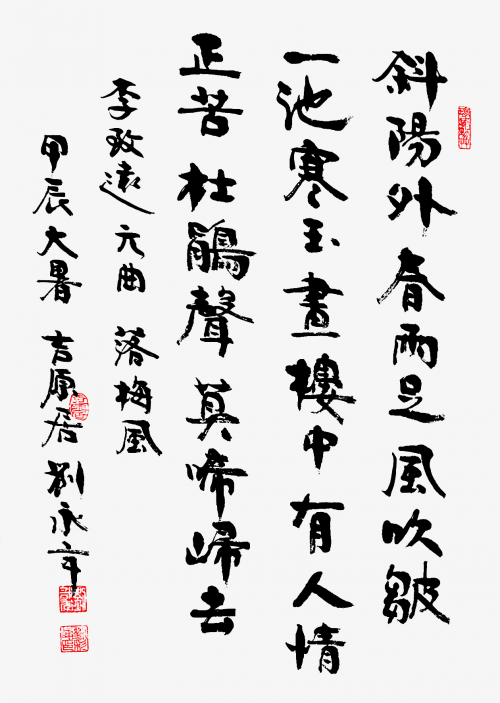 斜陽外春雨足風吹皺
一池寒玉畫樓中有人情
正苦杜鵑聲莫啼歸去
李致遠元曲落梅風
甲辰大暑吉原居刘永